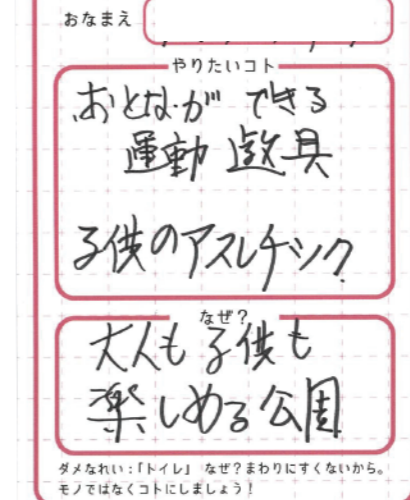 おなまえ
やりたいコト
おとなができる
運動遊具
子供のアスレチック
なぜ?
大人も子供も
楽しめる公園
ダメなれい:「トイレ」 なぜ?まわりにすくないから。
モノではなくコトにしましょう!